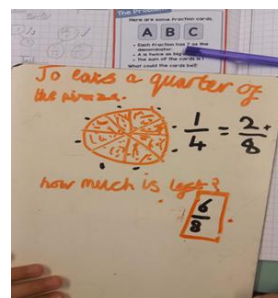 The Pr
Here are some fraction cards.
A B C
Each fraction has 7 as the
denominator.
A is twice as big
The sum of the cards is
What could the cards be?
Jo eats a quarter of
the pizza.
1/4 = 2/8
how much is left?
6/8